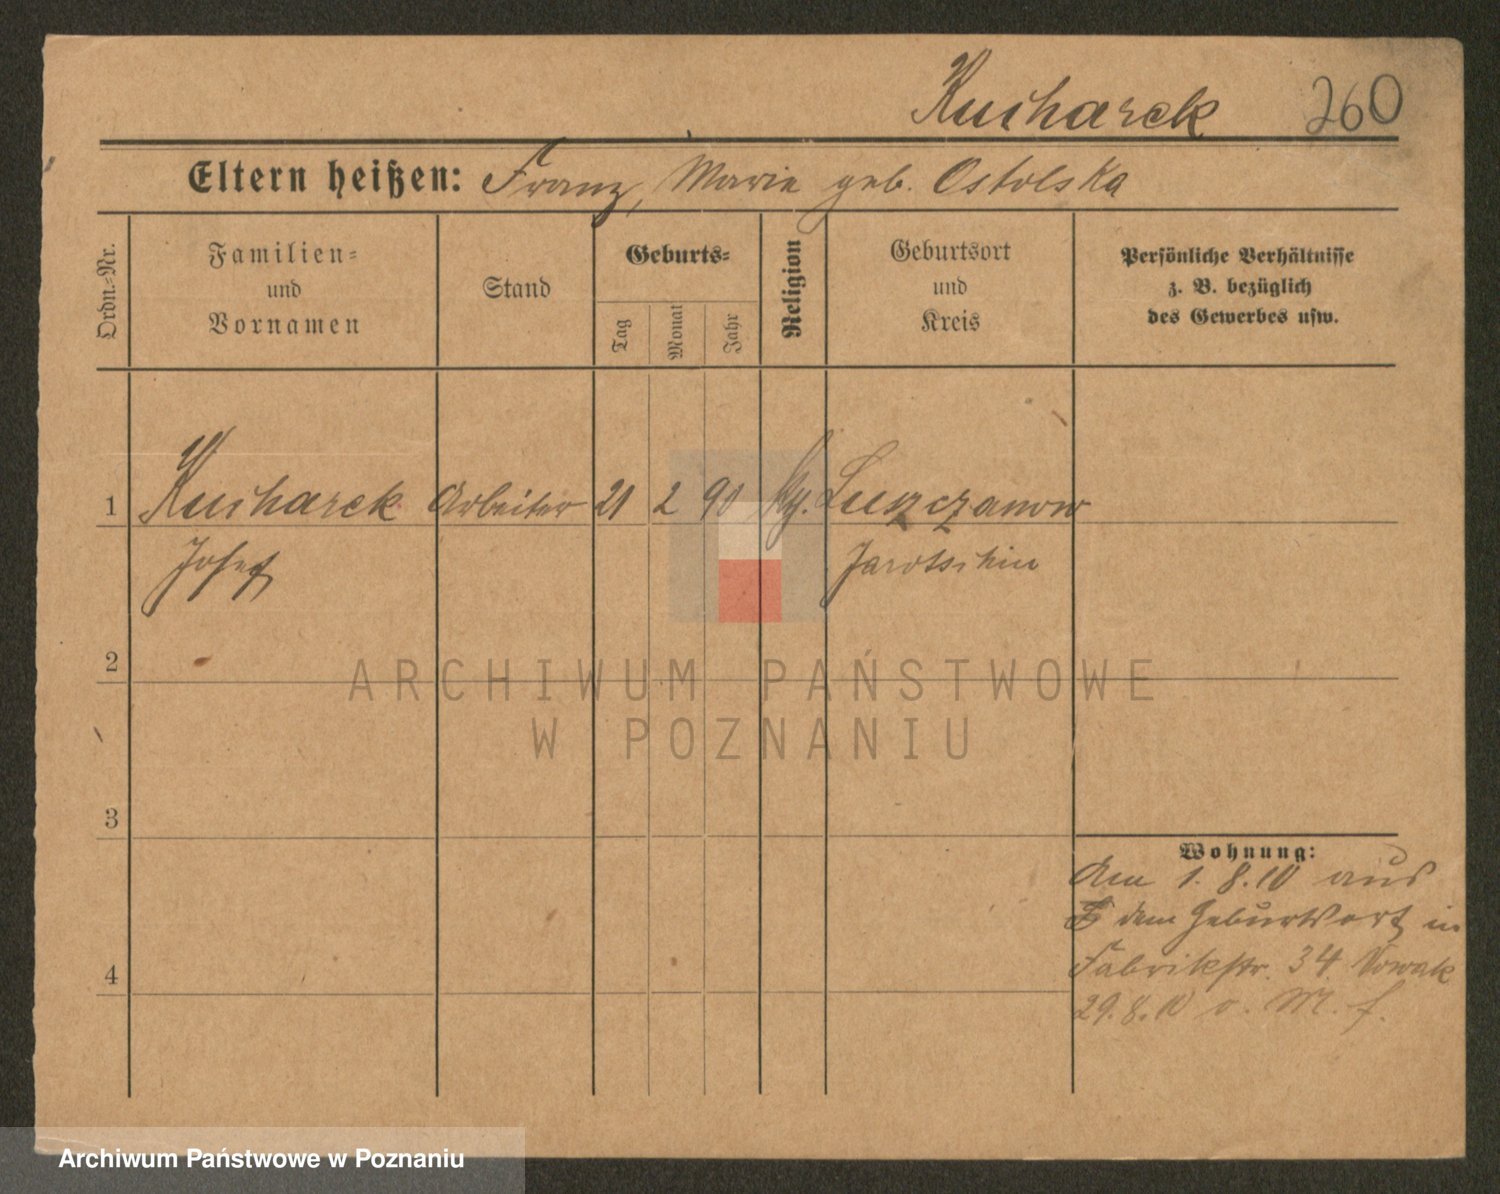 Kucharek 260
Eltern heißen: Franz, Marie geb. Ostolska
Ordn.=Nr.
Familien=
und
Vornamen
Stand
Geburts=
Tag
Monat
Jahr
Religion
Geburtsort
und
Kreis
Persönliche Verhältnisse
z. B. bezüglich
des Gewerbes usw.
1 Kucharek Arbeiter 21 2 90 Luszczanow
Josef Jarotschin
2
3
4
Wohnung:
Am 1.8.10 aus
dem Geburtsort in
Fabrikstr. 34 Nowak
29.8.10 o. M. f.
ARCHIWUM PAŃSTWOWE
W POZNANIU
Archiwum Państwowe w Poznaniu